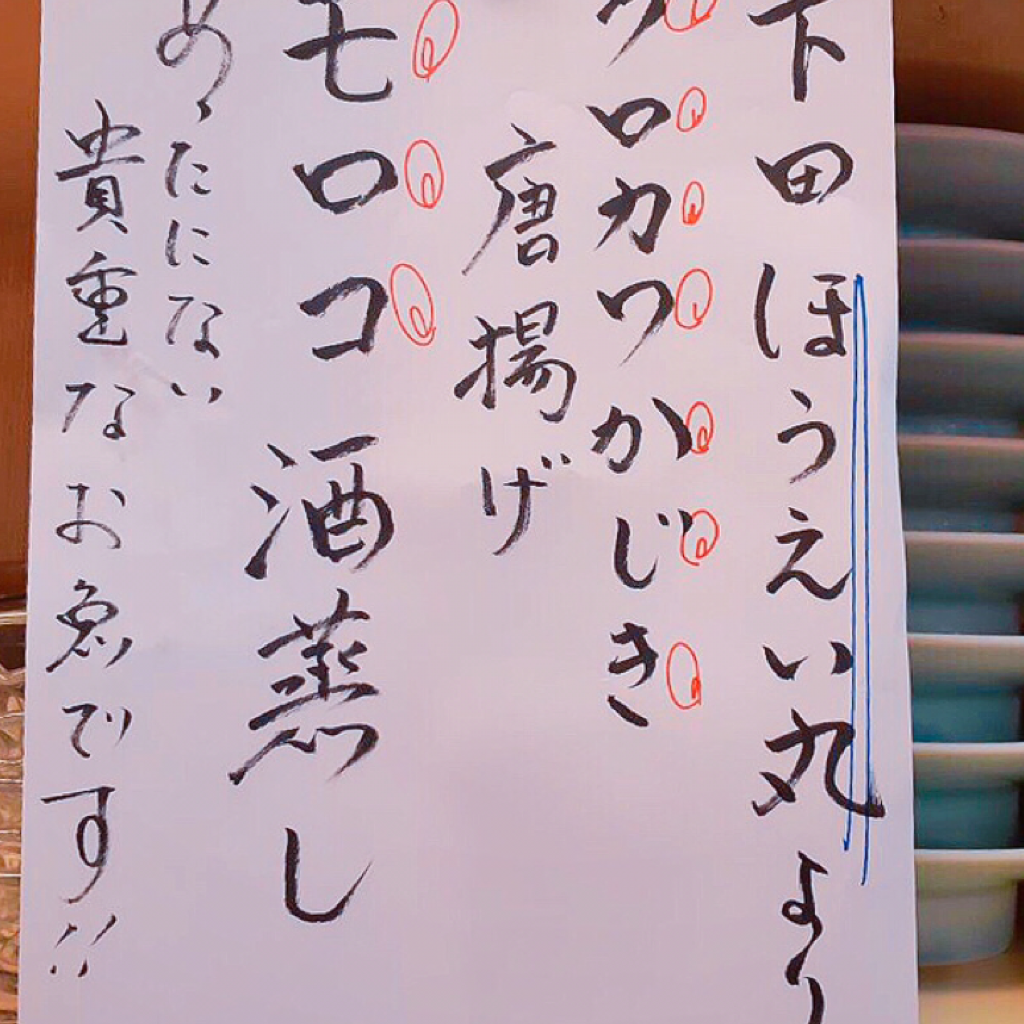 下田ほうえい丸より
クロカワかじき
唐揚げ
モロコ 酒蒸し
めったにない
貴重なお魚です!!